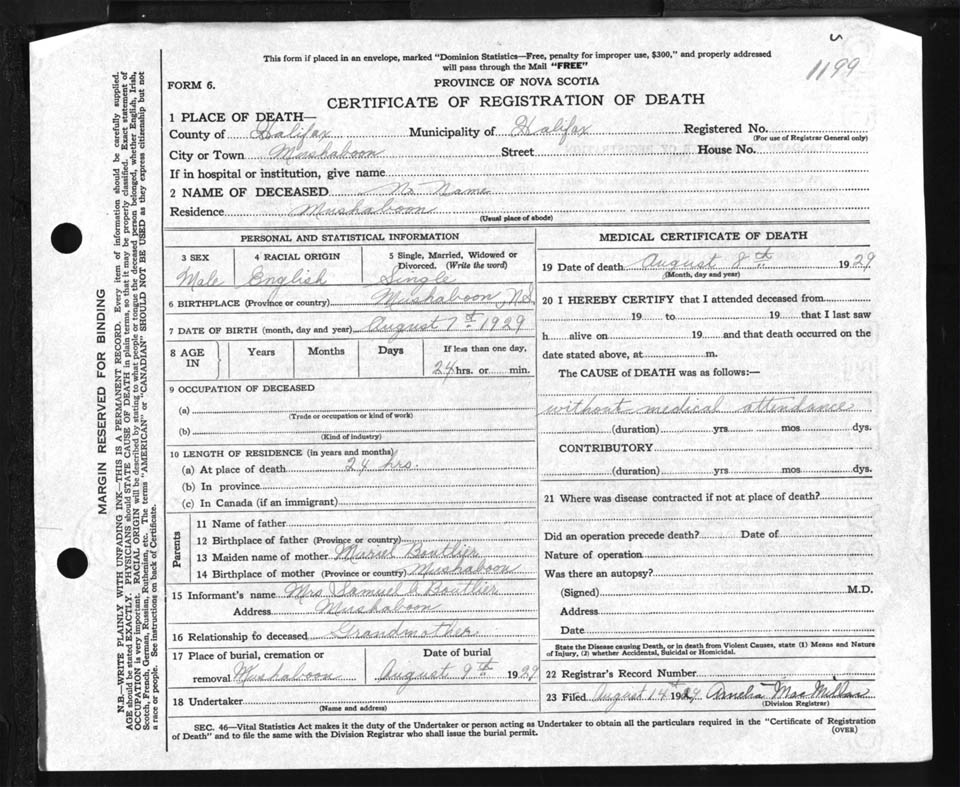 1199
This form if placed in an envelope, marked "Dominion Statistics—Free, penalty for improper use, $300," and properly addressed
will pass through the Mail "FREE"
FORM 6.
PROVINCE OF NOVA SCOTIA
CERTIFICATE OF REGISTRATION OF DEATH
1 PLACE OF DEATH—
County of Halifax Municipality of Halifax Registered No.
(For use of Registrar General only)
City or Town Mushaboon Street House No.
If in hospital or institution, give name
2 NAME OF DECEASED No Name
Residence Mushaboon
(Usual place of abode)
PERSONAL AND STATISTICAL INFORMATION
3 SEX 4 RACIAL ORIGIN 5 Single, Married, Widowed or
Divorced. (Write the word)
Male English Single
6 BIRTHPLACE (Province or country) Mushaboon, N.S.
7 DATE OF BIRTH (month, day and year) August 7th 1929
8 AGE IN Years Months Days If less than one day,
24 hrs. or min.
9 OCCUPATION OF DECEASED
(a)
(Trade or occupation or kind of work)
(b)
(Kind of industry)
10 LENGTH OF RESIDENCE (in years and months)
(a) At place of death 24 hrs.
(b) In province
(c) In Canada (if an immigrant)
Parents
11 Name of father
12 Birthplace of father (Province or country)
13 Maiden name of mother Muriel Boutlier
14 Birthplace of mother (Province or country) Mushaboon
15 Informant's name Mrs Samuel Boutlier
Address Mushaboon
16 Relationship to deceased Grandmother
17 Place of burial, cremation or Date of burial
removal Mushaboon August 9th 1929
18 Undertaker
(Name and address)
MEDICAL CERTIFICATE OF DEATH
19 Date of death August 8th 1929
(Month, day and year)
20 I HEREBY CERTIFY that I attended deceased from
19 to 19 that I last saw
h alive on 19 and that death occurred on the
date stated above, at m.
The CAUSE of DEATH was as follows:—
without medical attendance
(duration) yrs mos dys.
CONTRIBUTORY
(duration) yrs mos dys.
21 Where was disease contracted if not at place of death?
Did an operation precede death? Date of
Nature of operation
Was there an autopsy?
(Signed) M.D.
Address
Date
State the Disease causing Death, or in death from Violent Causes, state (1) Means and Nature
of Injury, (2) whether Accidental, Suicidal or Homicidal.
22 Registrar's Record Number
23 Filed August 14th 1929 Amelia MacMillan
(Division Registrar)
SEC. 46—Vital Statistics Act makes it the duty of the Undertaker or person acting as Undertaker to obtain all the particulars required in the "Certificate of Registration
of Death" and to file the same with the Division Registrar who shall issue the burial permit.
(OVER)
MARGIN RESERVED FOR BINDING
N.B.—WRITE PLAINLY WITH UNFADING INK—THIS IS A PERMANENT RECORD. Every item of information should be carefully supplied.
AGE should be stated EXACTLY. PHYSICIANS should STATE CAUSE OF DEATH in plain terms, so that it may be properly classified. Exact statement of
OCCUPATION is very important. RACIAL ORIGIN will be described by stating to what people or tongue the deceased person belonged, whether English, Irish,
Scotch, French, German, Russian, Ruthenian, etc. The terms "AMERICAN" or "CANADIAN" SHOULD NOT BE USED as they express citizenship but not
a race or people. See instructions on back of Certificate.